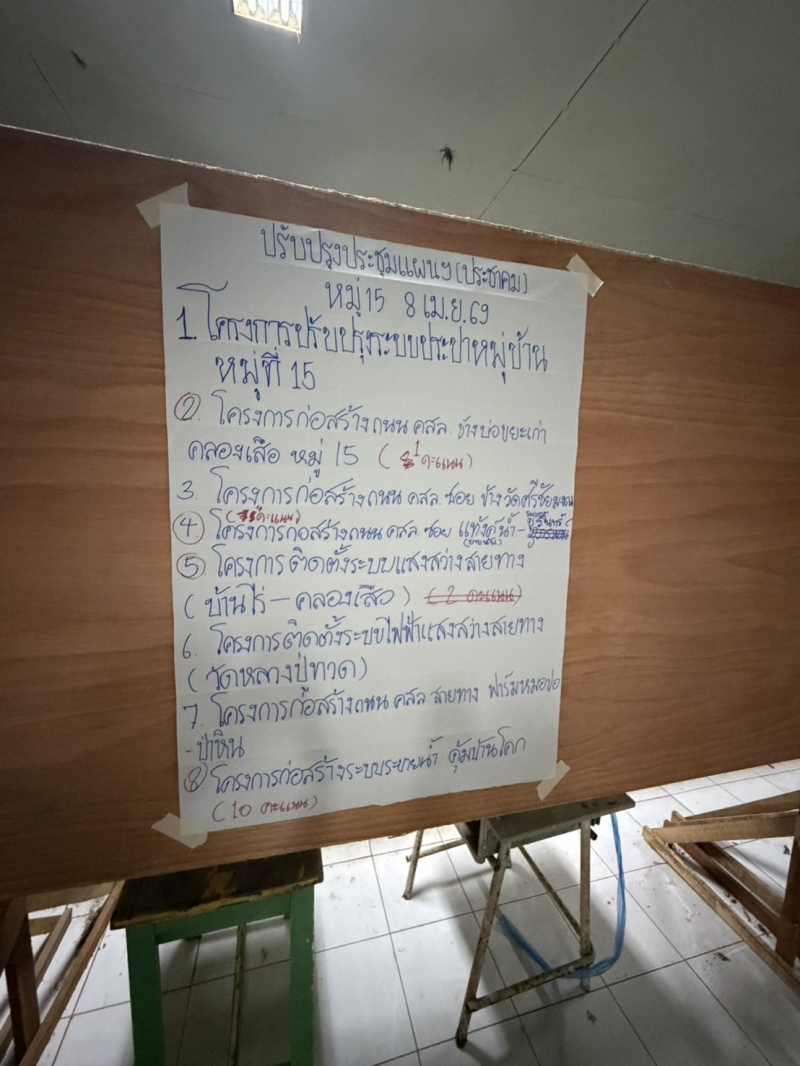 ปรับปรุงประชุมแผนฯ (ประชาคม)
หมู่ 15 8 เม.ย. 69
1. โครงการปรับปรุงระบบประปาหมู่บ้าน
หมู่ที่ 15
2. โครงการก่อสร้างถนน คสล. ข้างบ่อขยะเก่า
คลองเสือ หมู่ 15 ( 1 คะแนน )
3. โครงการก่อสร้างถนน คสล. ซอย ข้างวัดศรีชัยมงคล
( คะแนน)
4 โครงการก่อสร้างถนน คสล. ซอย แท้งค์น้ำ -
5. โครงการติดตั้งระบบแสงสว่างสายทาง
( บ้านไร่ - คลองเสือ ) ( 2 คะแนน)
6. โครงการติดตั้งระบบไฟฟ้าแสงสว่างสายทาง
( วัดหลวงปู่ทวด )
7. โครงการก่อสร้างถนน คสล. สายทาง ฟาร์มหมอ
- ป่าหิน
8 โครงการก่อสร้างระบบระบายน้ำ คุ้มบ้านโคก
( 10 คะแนน )